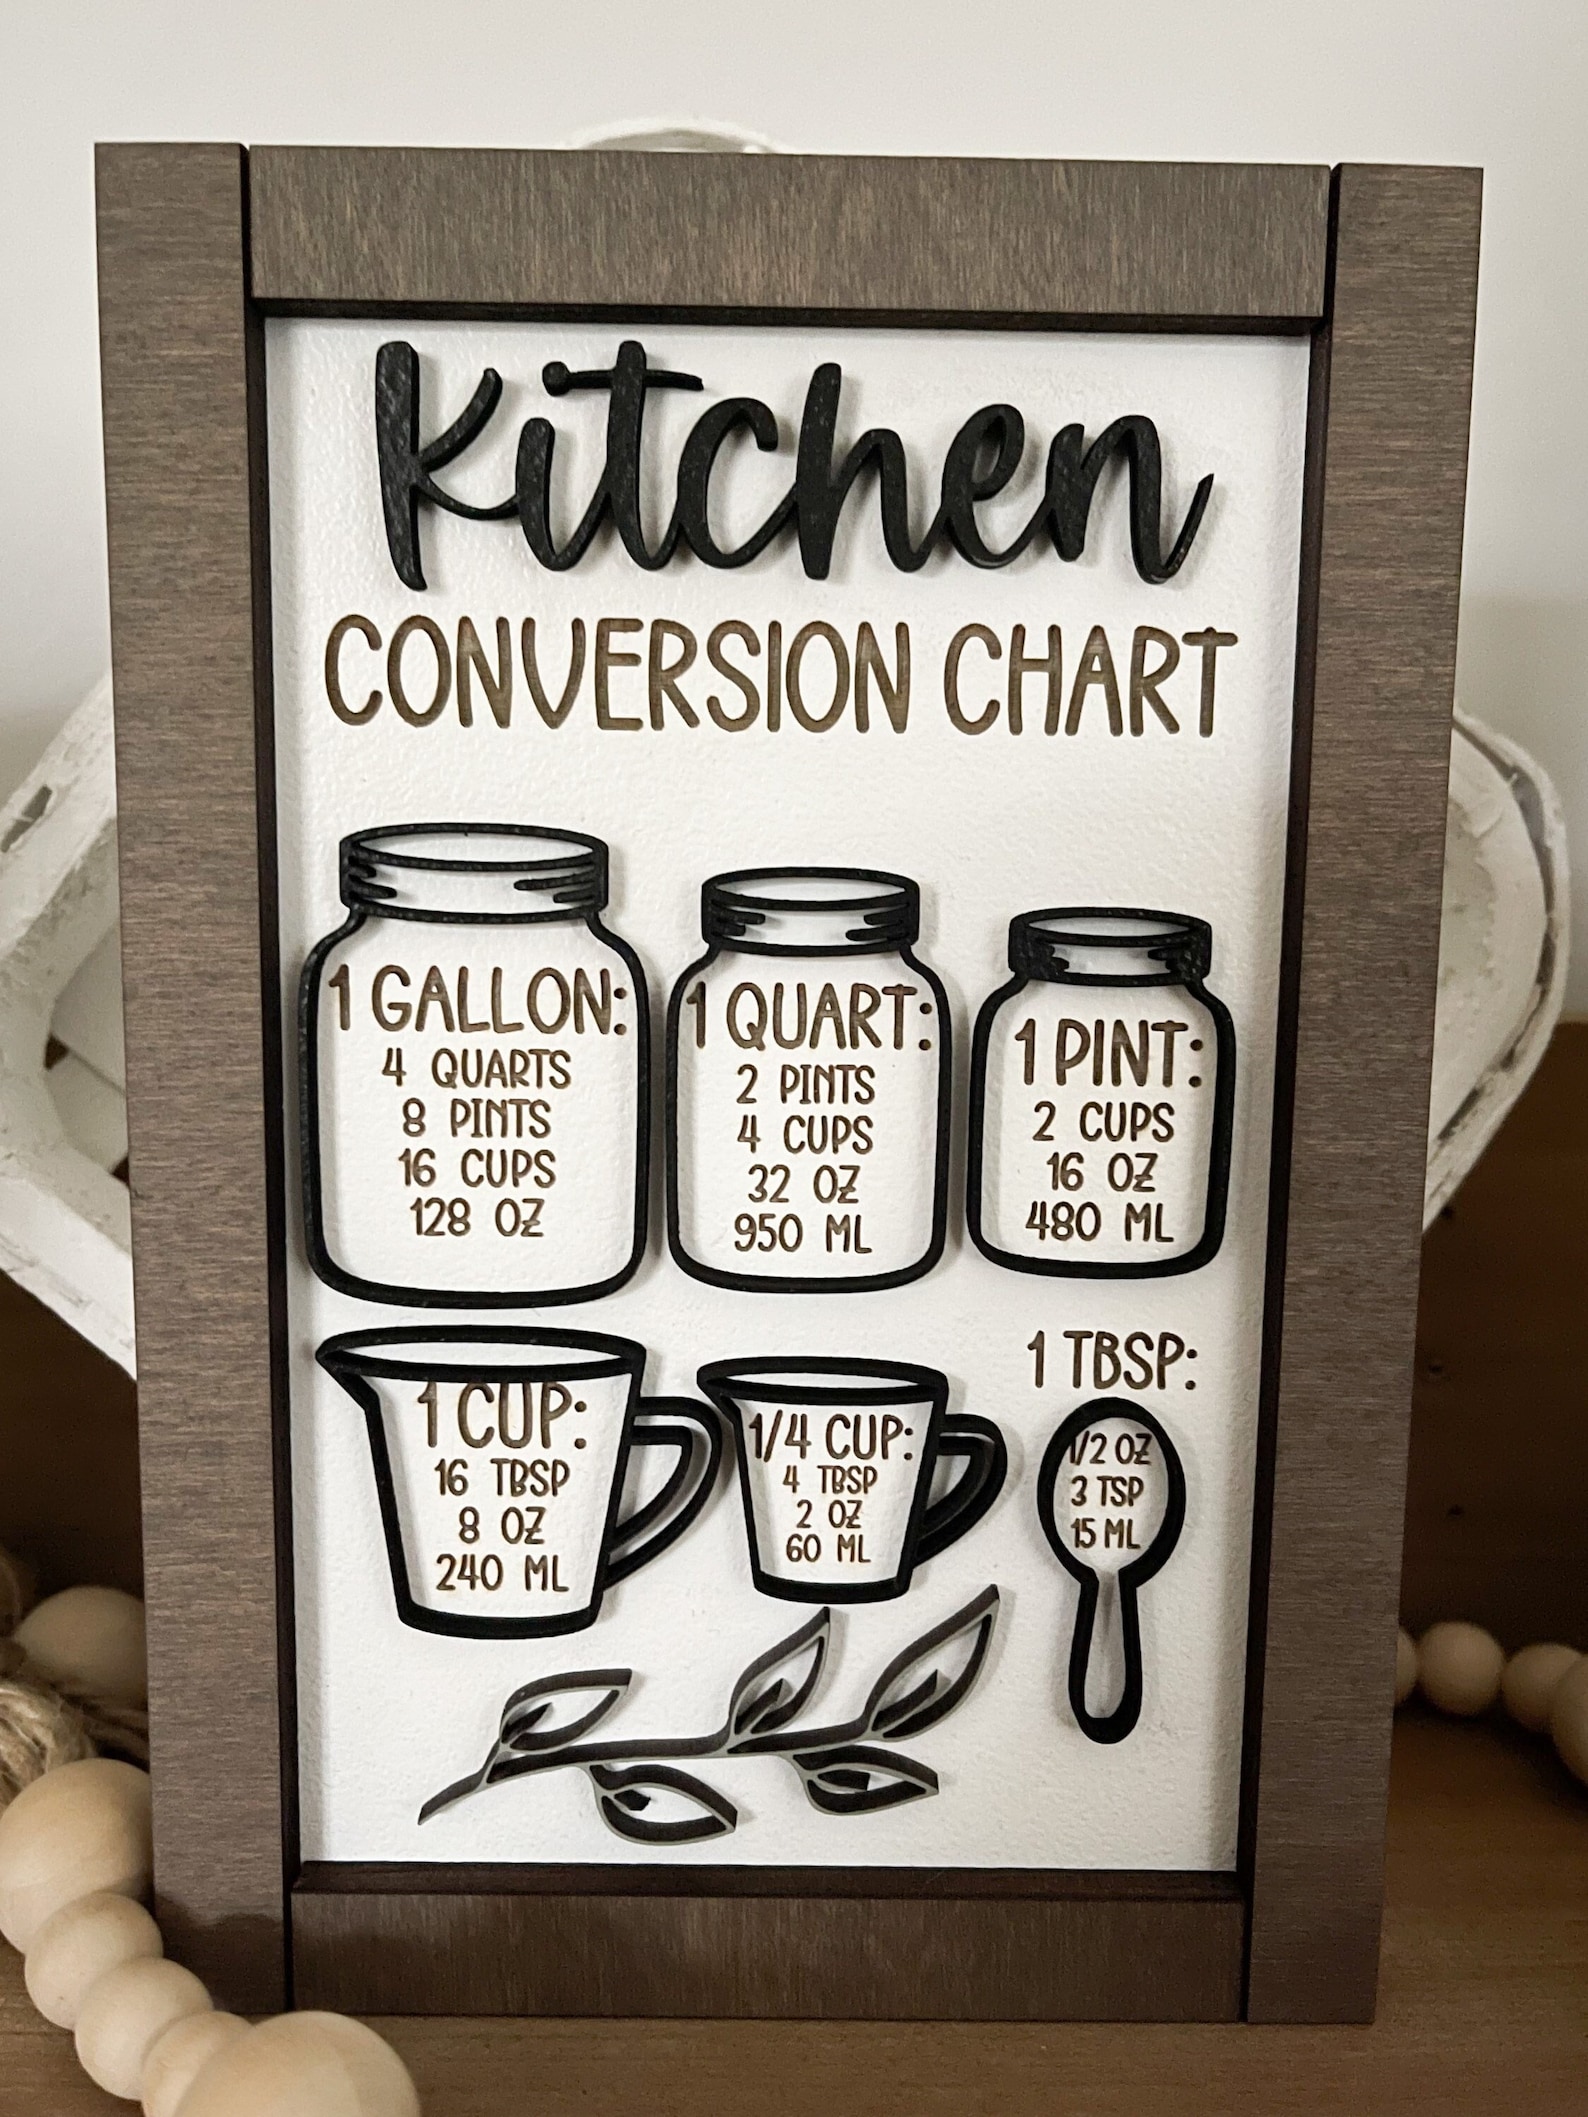 Kitchen
CONVERSION CHART
1 GALLON:
4 QUARTS
8 PINTS
16 CUPS
128 OZ
1 QUART:
2 PINTS
4 CUPS
32 OZ
950 ML
1 PINT:
2 CUPS
16 OZ
480 ML
1 CUP:
16 TBSP
8 OZ
240 ML
1/4 CUP:
4 TBSP
2 OZ
60 ML
1 TBSP:
1/2 OZ
3 TSP
15 ML